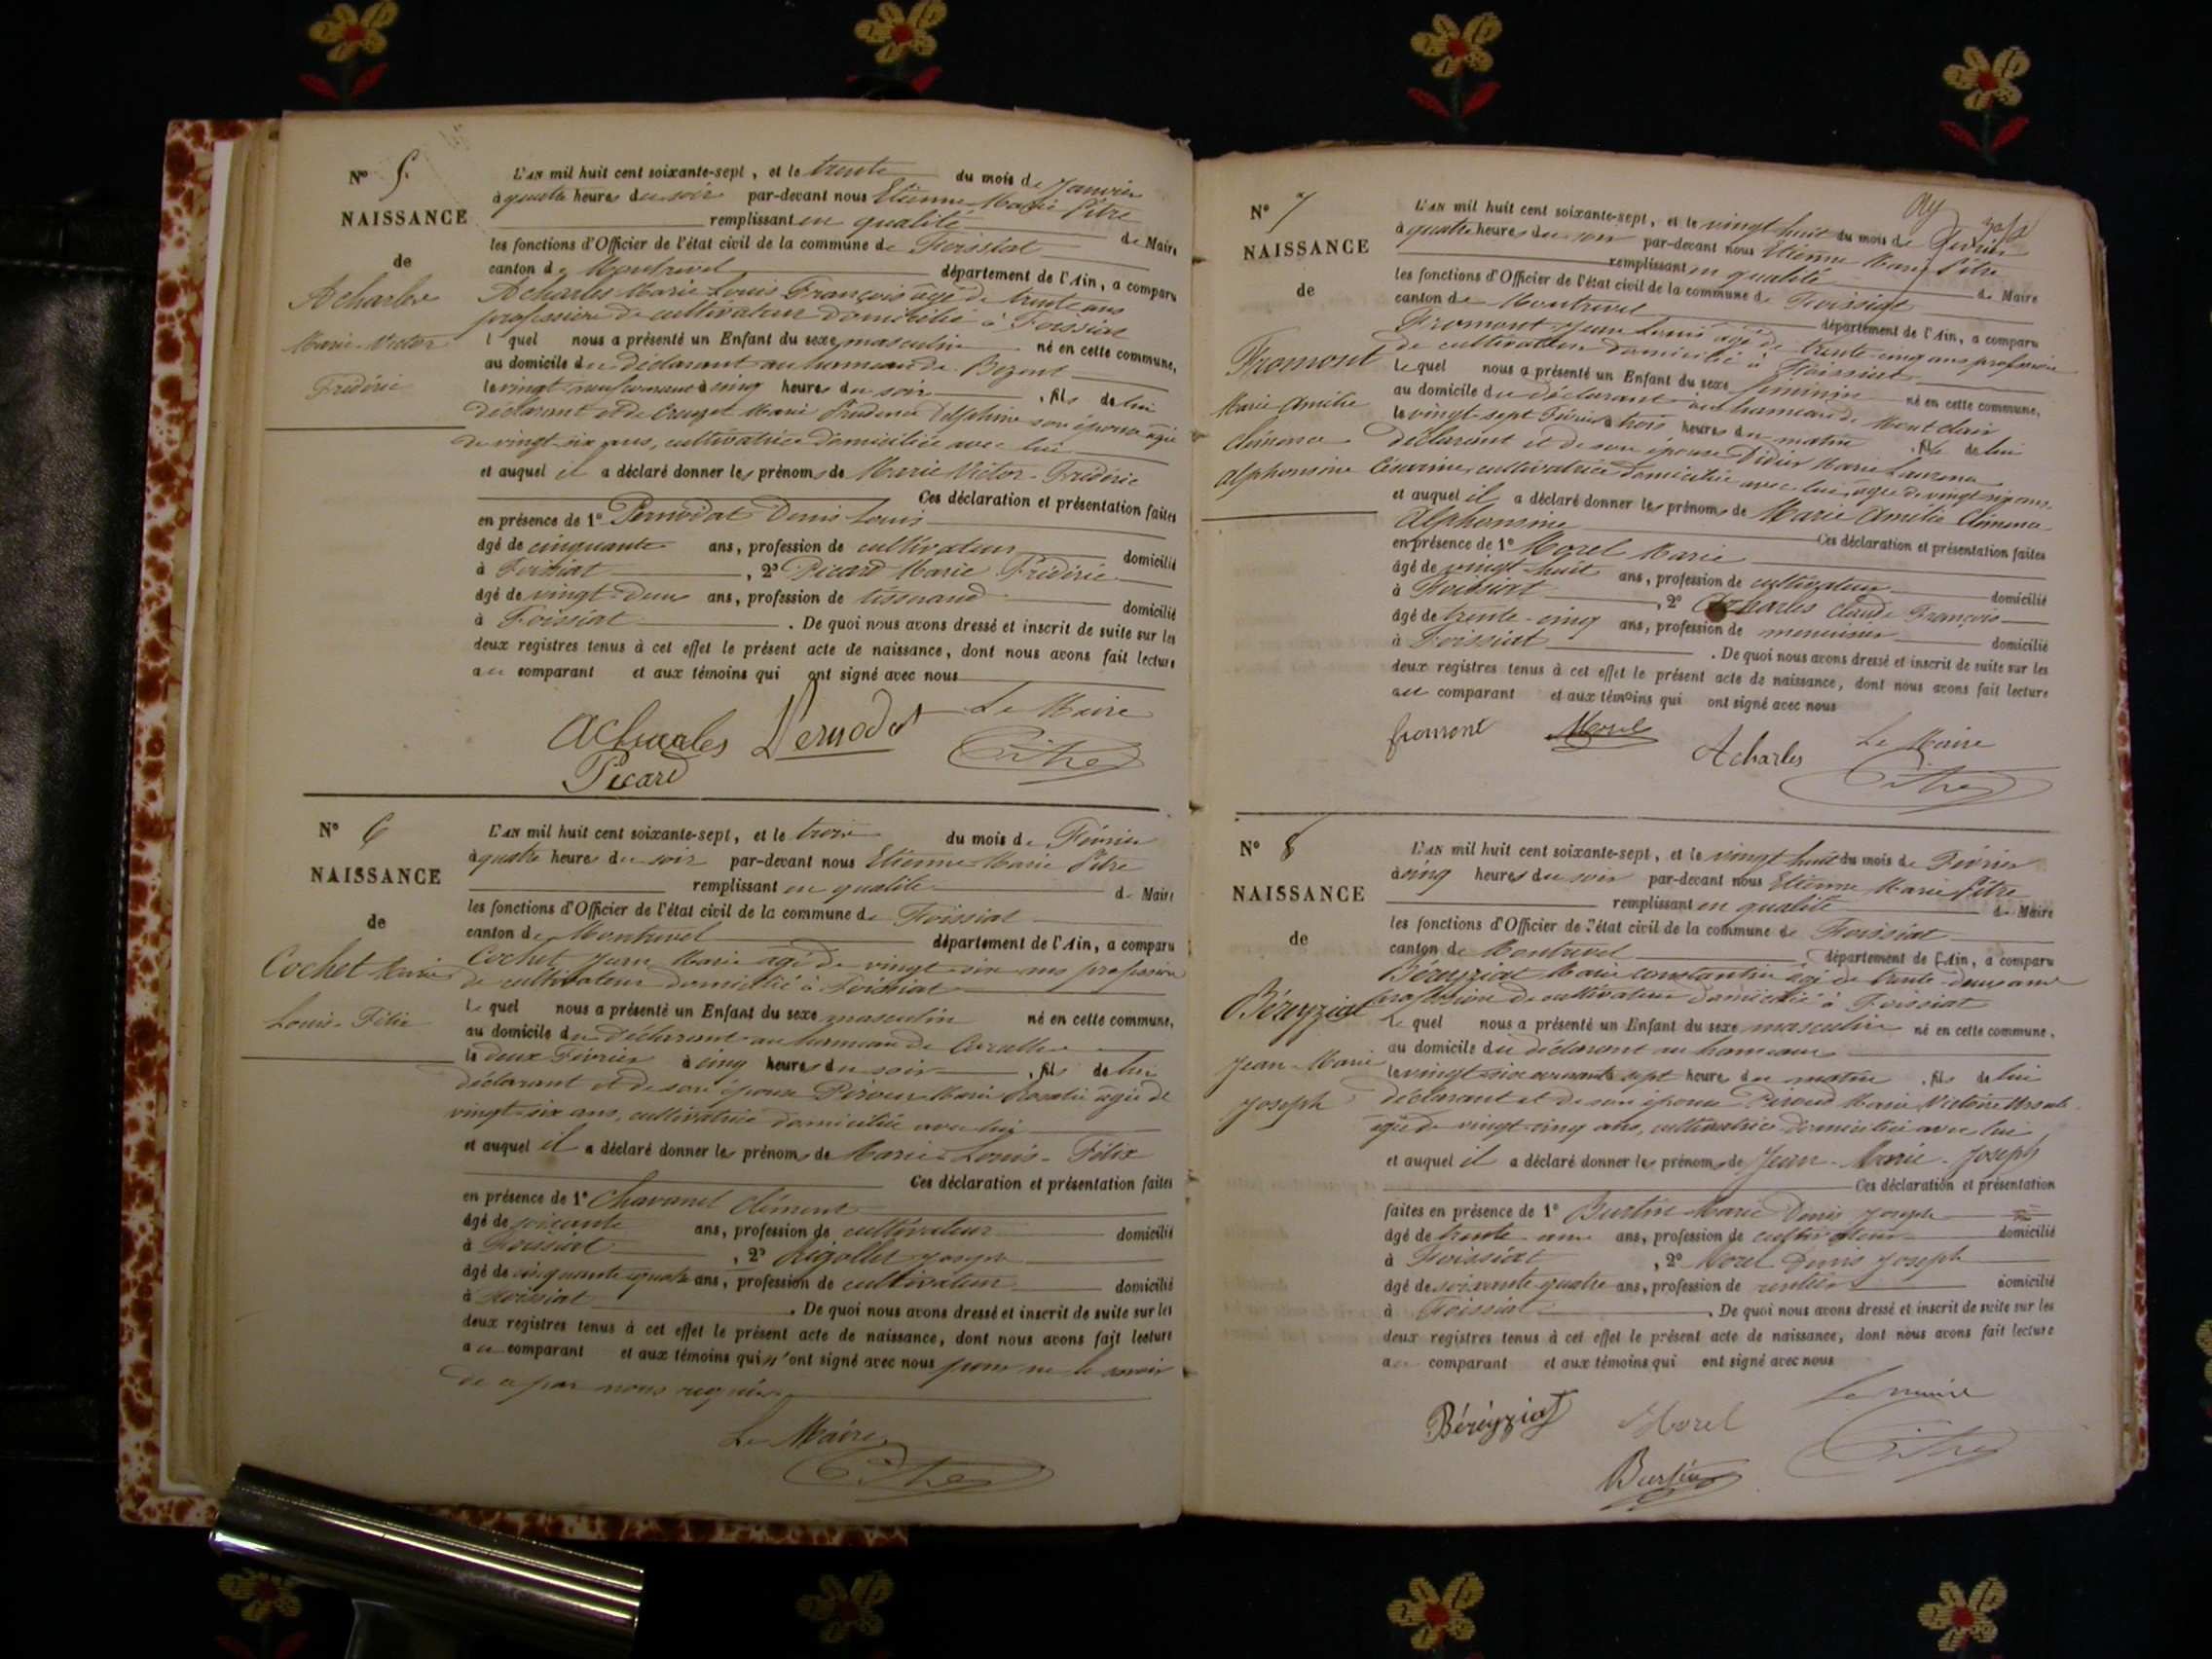 N° 5.
NAISSANCE
de
Acharles
Marie-Victor
Frédéric
L'AN mil huit cent soixante-sept, et le trente du mois de Janvier
à quatre heures du soir par-devant nous Etienne Marie Pitre
remplissant en qualité de Maire
les fonctions d'Officier de l'état civil de la commune de Foissiat
canton de Montrevel département de l'Ain, a comparu
Acharles Marie Louis François âgé de trente ans
profession de cultivateur domicilié à Foissiat
lequel nous a présenté un Enfant du sexe masculin né en cette commune,
au domicile du déclarant au hameau de
le vingt neuf courant à cinq heures du soir, fils de lui
déclarant et de Marie Prudence Delphine son épouse âgée
de vingt six ans, cultivatrice domiciliée avec lui
et auquel il a déclaré donner les prénoms de Marie Victor-Frédéric
Ces déclaration et présentation faites
en présence de 1° Pernodat Denis Louis
âgé de cinquante ans, profession de cultivateur domicilié
à Foissiat, 2° Picard Marie Frédéric
âgé de vingt-deux ans, profession de tisserand domicilié
à Foissiat. De quoi nous avons dressé et inscrit de suite sur les
deux registres tenus à cet effet le présent acte de naissance, dont nous avons fait lecture
au comparant et aux témoins qui ont signé avec nous
Acharles Pernodat Le Maire
Picard Pitre
N° 6
NAISSANCE
de
Cochet Marie
Louis-Félix
L'AN mil huit cent soixante-sept, et le trois du mois de Février
à quatre heures du soir par-devant nous Etienne Marie Pitre
remplissant en qualité de Maire
les fonctions d'Officier de l'état civil de la commune de Foissiat
canton de Montrevel département de l'Ain, a comparu
Cochet Jean Marie âgé de vingt-six ans profession
de cultivateur domicilié à Foissiat
Lequel nous a présenté un Enfant du sexe masculin né en cette commune,
au domicile du déclarant au hameau de
le deux Février à cinq heures du soir, fils de lui
déclarant et de son épouse Marie Rosalie âgée de
vingt-six ans, cultivatrice domiciliée avec lui
et auquel il a déclaré donner les prénoms de Marie-Louis-Félix
Ces déclaration et présentation faites
en présence de 1° Chavanel Clément
âgé de soixante ans, profession de cultivateur domicilié
à Foissiat, 2° Rigollet Joseph
âgé de cinquante-quatre ans, profession de cultivateur domicilié
à Foissiat. De quoi nous avons dressé et inscrit de suite sur les
deux registres tenus à cet effet le présent acte de naissance, dont nous avons fait lecture
au comparant et aux témoins qui n'ont signé avec nous pour ne le savoir
de ce par nous requis
Le Maire
Pitre
N° 7
NAISSANCE
de
Fromont
Marie Amélie
Clémence
Alphonsine
L'AN mil huit cent soixante-sept, et le vingt huit du mois de Février
à quatre heures du soir par-devant nous Etienne Marie Pitre
remplissant en qualité de Maire
les fonctions d'Officier de l'état civil de la commune de Foissiat
canton de Montrevel département de l'Ain, a comparu
Fromont Jean Louis âgé de trente-cinq ans profession
de cultivateur domicilié à Foissiat
Lequel nous a présenté un Enfant du sexe féminin né en cette commune,
au domicile du déclarant au hameau de Montclair
le vingt-sept Février à trois heures du matin, fille de lui
déclarant et de son épouse Didier Marie
cultivatrice domiciliée avec lui, âgée de vingt six ans,
et auquel il a déclaré donner les prénoms de Marie Amélie Clémence
Alphonsine Ces déclaration et présentation faites
en présence de 1° Morel Marie
âgé de vingt-huit ans, profession de cultivateur domicilié
à Foissiat, 2° Acharles Claude François
âgé de trente-cinq ans, profession de menuisier domicilié
à Foissiat. De quoi nous avons dressé et inscrit de suite sur les
deux registres tenus à cet effet le présent acte de naissance, dont nous avons fait lecture
au comparant et aux témoins qui ont signé avec nous
fromont Morel Acharles Le Maire
Pitre
N° 8
NAISSANCE
de
Béréyziat
Jean-Marie
Joseph
L'AN mil huit cent soixante-sept, et le vingt huit du mois de Février
à cinq heures du soir par-devant nous Etienne Marie Pitre
remplissant en qualité de Maire
les fonctions d'Officier de l'état civil de la commune de Foissiat
canton de Montrevel département de l'Ain, a comparu
Béréyziat Marie Constantin âgé de trente-deux ans
profession de cultivateur domicilié à Foissiat
Lequel nous a présenté un Enfant du sexe masculin né en cette commune,
au domicile du déclarant au hameau
le vingt-six courant à sept heures du matin, fils de lui
déclarant et de son épouse Peroud Marie Victoire Ursule
âgée de vingt-cinq ans, cultivatrice domiciliée avec lui
et auquel il a déclaré donner les prénoms de Jean-Marie-Joseph
Ces déclaration et présentation
faites en présence de 1° Burtin Marie Denis Joseph
âgé de trente ans, profession de cultivateur domicilié
à Foissiat, 2° Morel Denis Joseph
âgé de soixante-quatre ans, profession de rentier domicilié
à Foissiat. De quoi nous avons dressé et inscrit de suite sur les
deux registres tenus à cet effet le présent acte de naissance, dont nous avons fait lecture
au comparant et aux témoins qui ont signé avec nous
Béréyziat Morel Le maire
Burtin Pitre